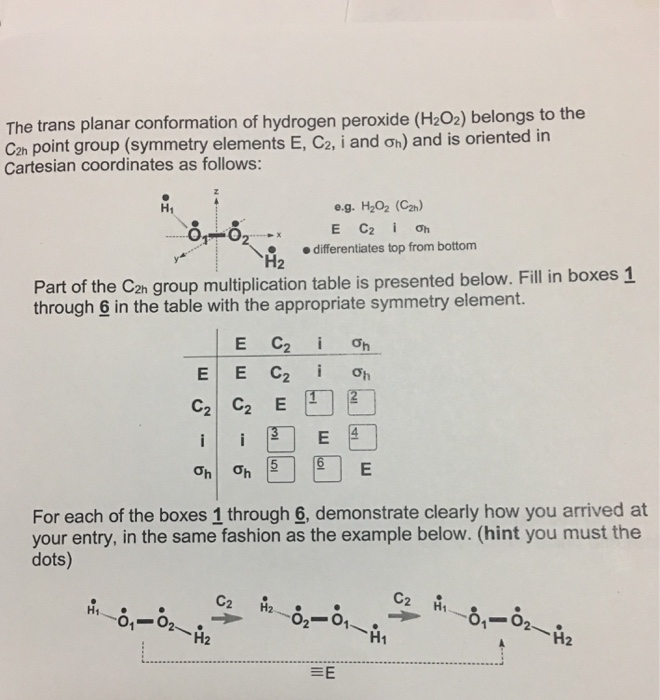 The trans planar conformation of hydrogen peroxide (H₂O₂) belongs to the
C₂ₕ point group (symmetry elements E, C₂, i and σₕ) and is oriented in
Cartesian coordinates as follows:
z
H₁ e.g. H₂O₂ (C₂ₕ)
O₁ O₂ x E C₂ i σₕ
y H₂ ● differentiates top from bottom
Part of the C₂ₕ group multiplication table is presented below. Fill in boxes 1
through 6 in the table with the appropriate symmetry element.
E C₂ i σₕ
E E C₂ i σₕ
C₂ C₂ E 1 2
i i 3 E 4
σₕ σₕ 5 6 E
For each of the boxes 1 through 6, demonstrate clearly how you arrived at
your entry, in the same fashion as the example below. (hint you must the
dots)
H₁ O₁ O₂ H₂ C₂ H₂ O₂ O₁ H₁ C₂ H₁ O₁ O₂ H₂
≡E